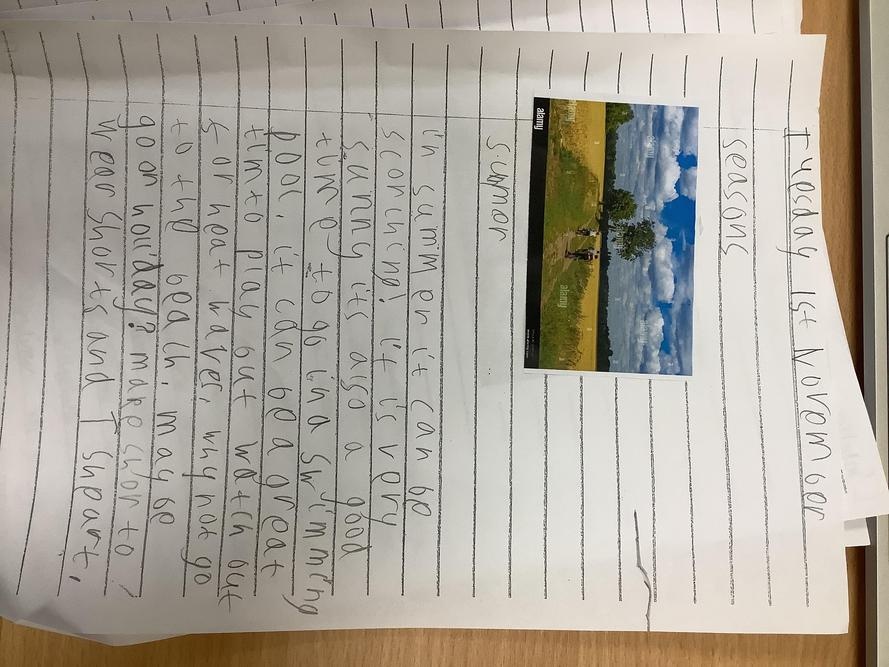 Tuesday 1st November
seasons
alamy
summor
in summer it can be
scorching! it is very
suning its also a good
time to go in a swimming
pool, it can be a great
tim to play out watch out
for heat waves, why not go
to the beach, may be
go on holliday? make shor to
wear shorts and T sheart.